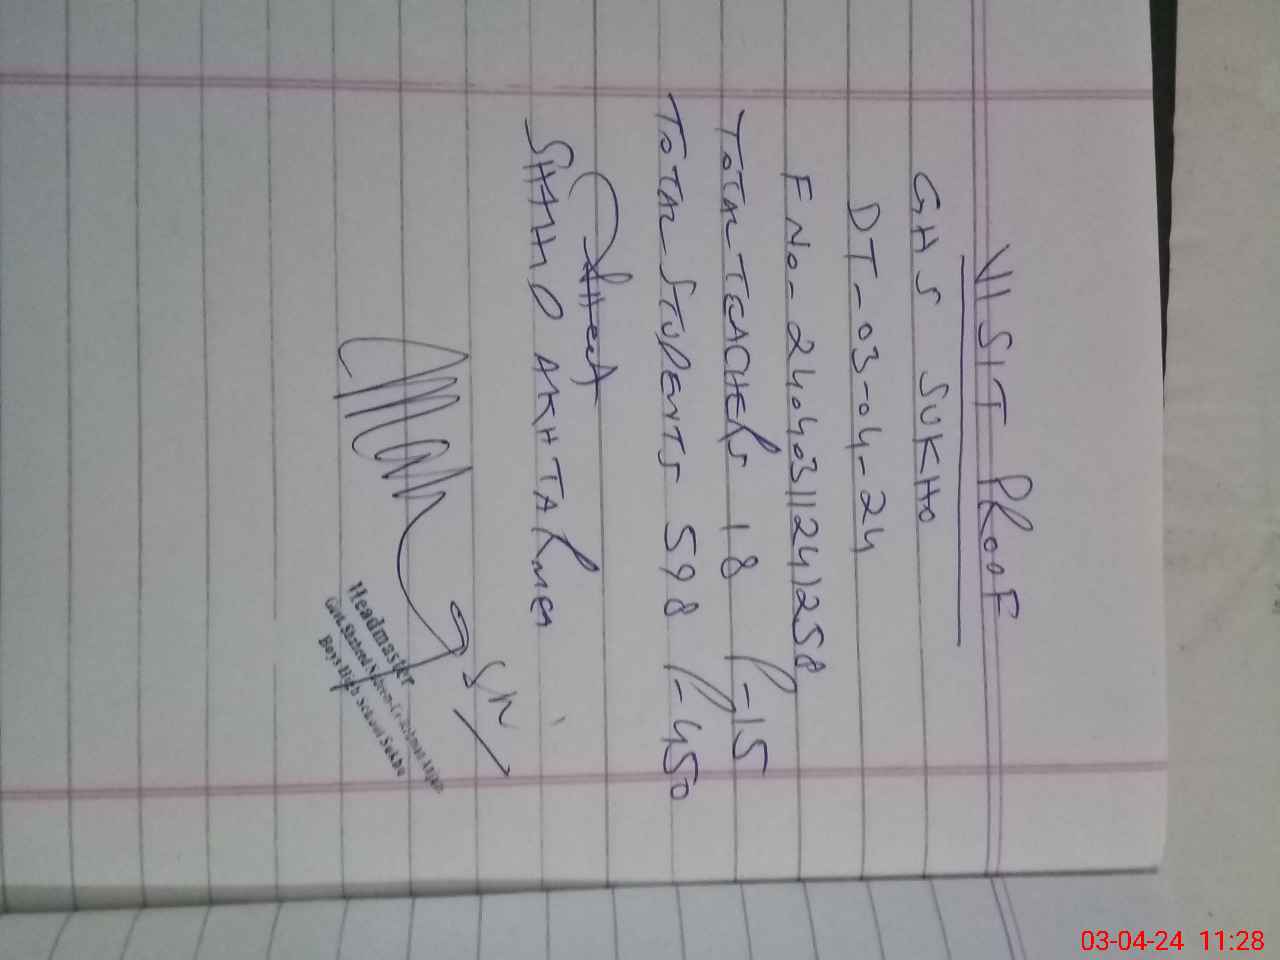 VISIT PROOF
GHS SUKHO
DT-03-04-24
F NO-24040311241258
TOTAL TEACHERS 18 P-15
TOTAL STUDENTS 598 P-450
SHAHID AKHTAR
Headmaster
Boys High School Sukho
03-04-24 11:28